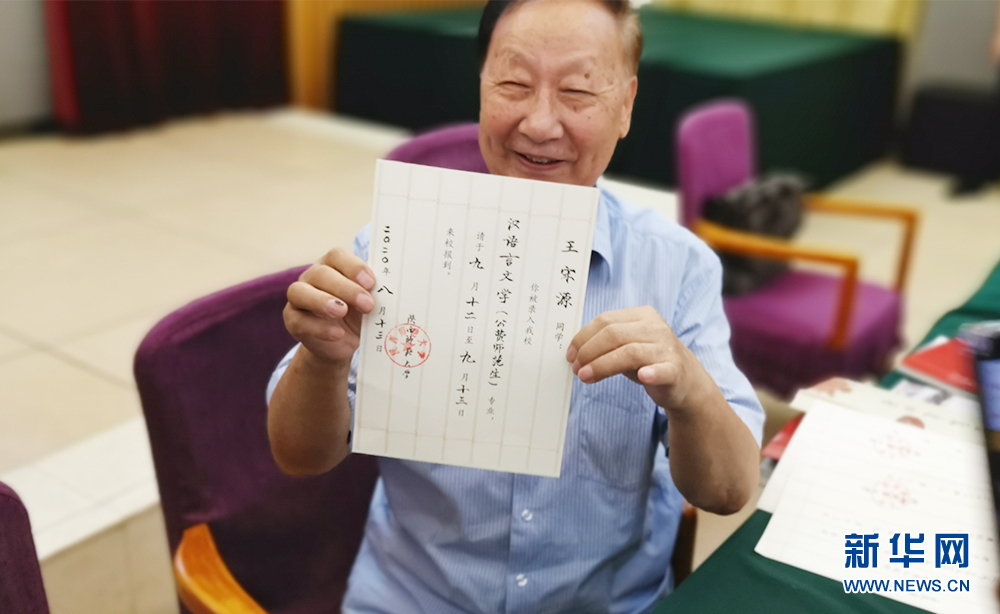 王宋源 同学：
你被录入我校
汉语言文学（公费师范生）专业，
请于九月十二日至九月十三日
来校报到。
陕西师范大学
二〇二〇年八月十三日
新华网
WWW.NEWS.CN